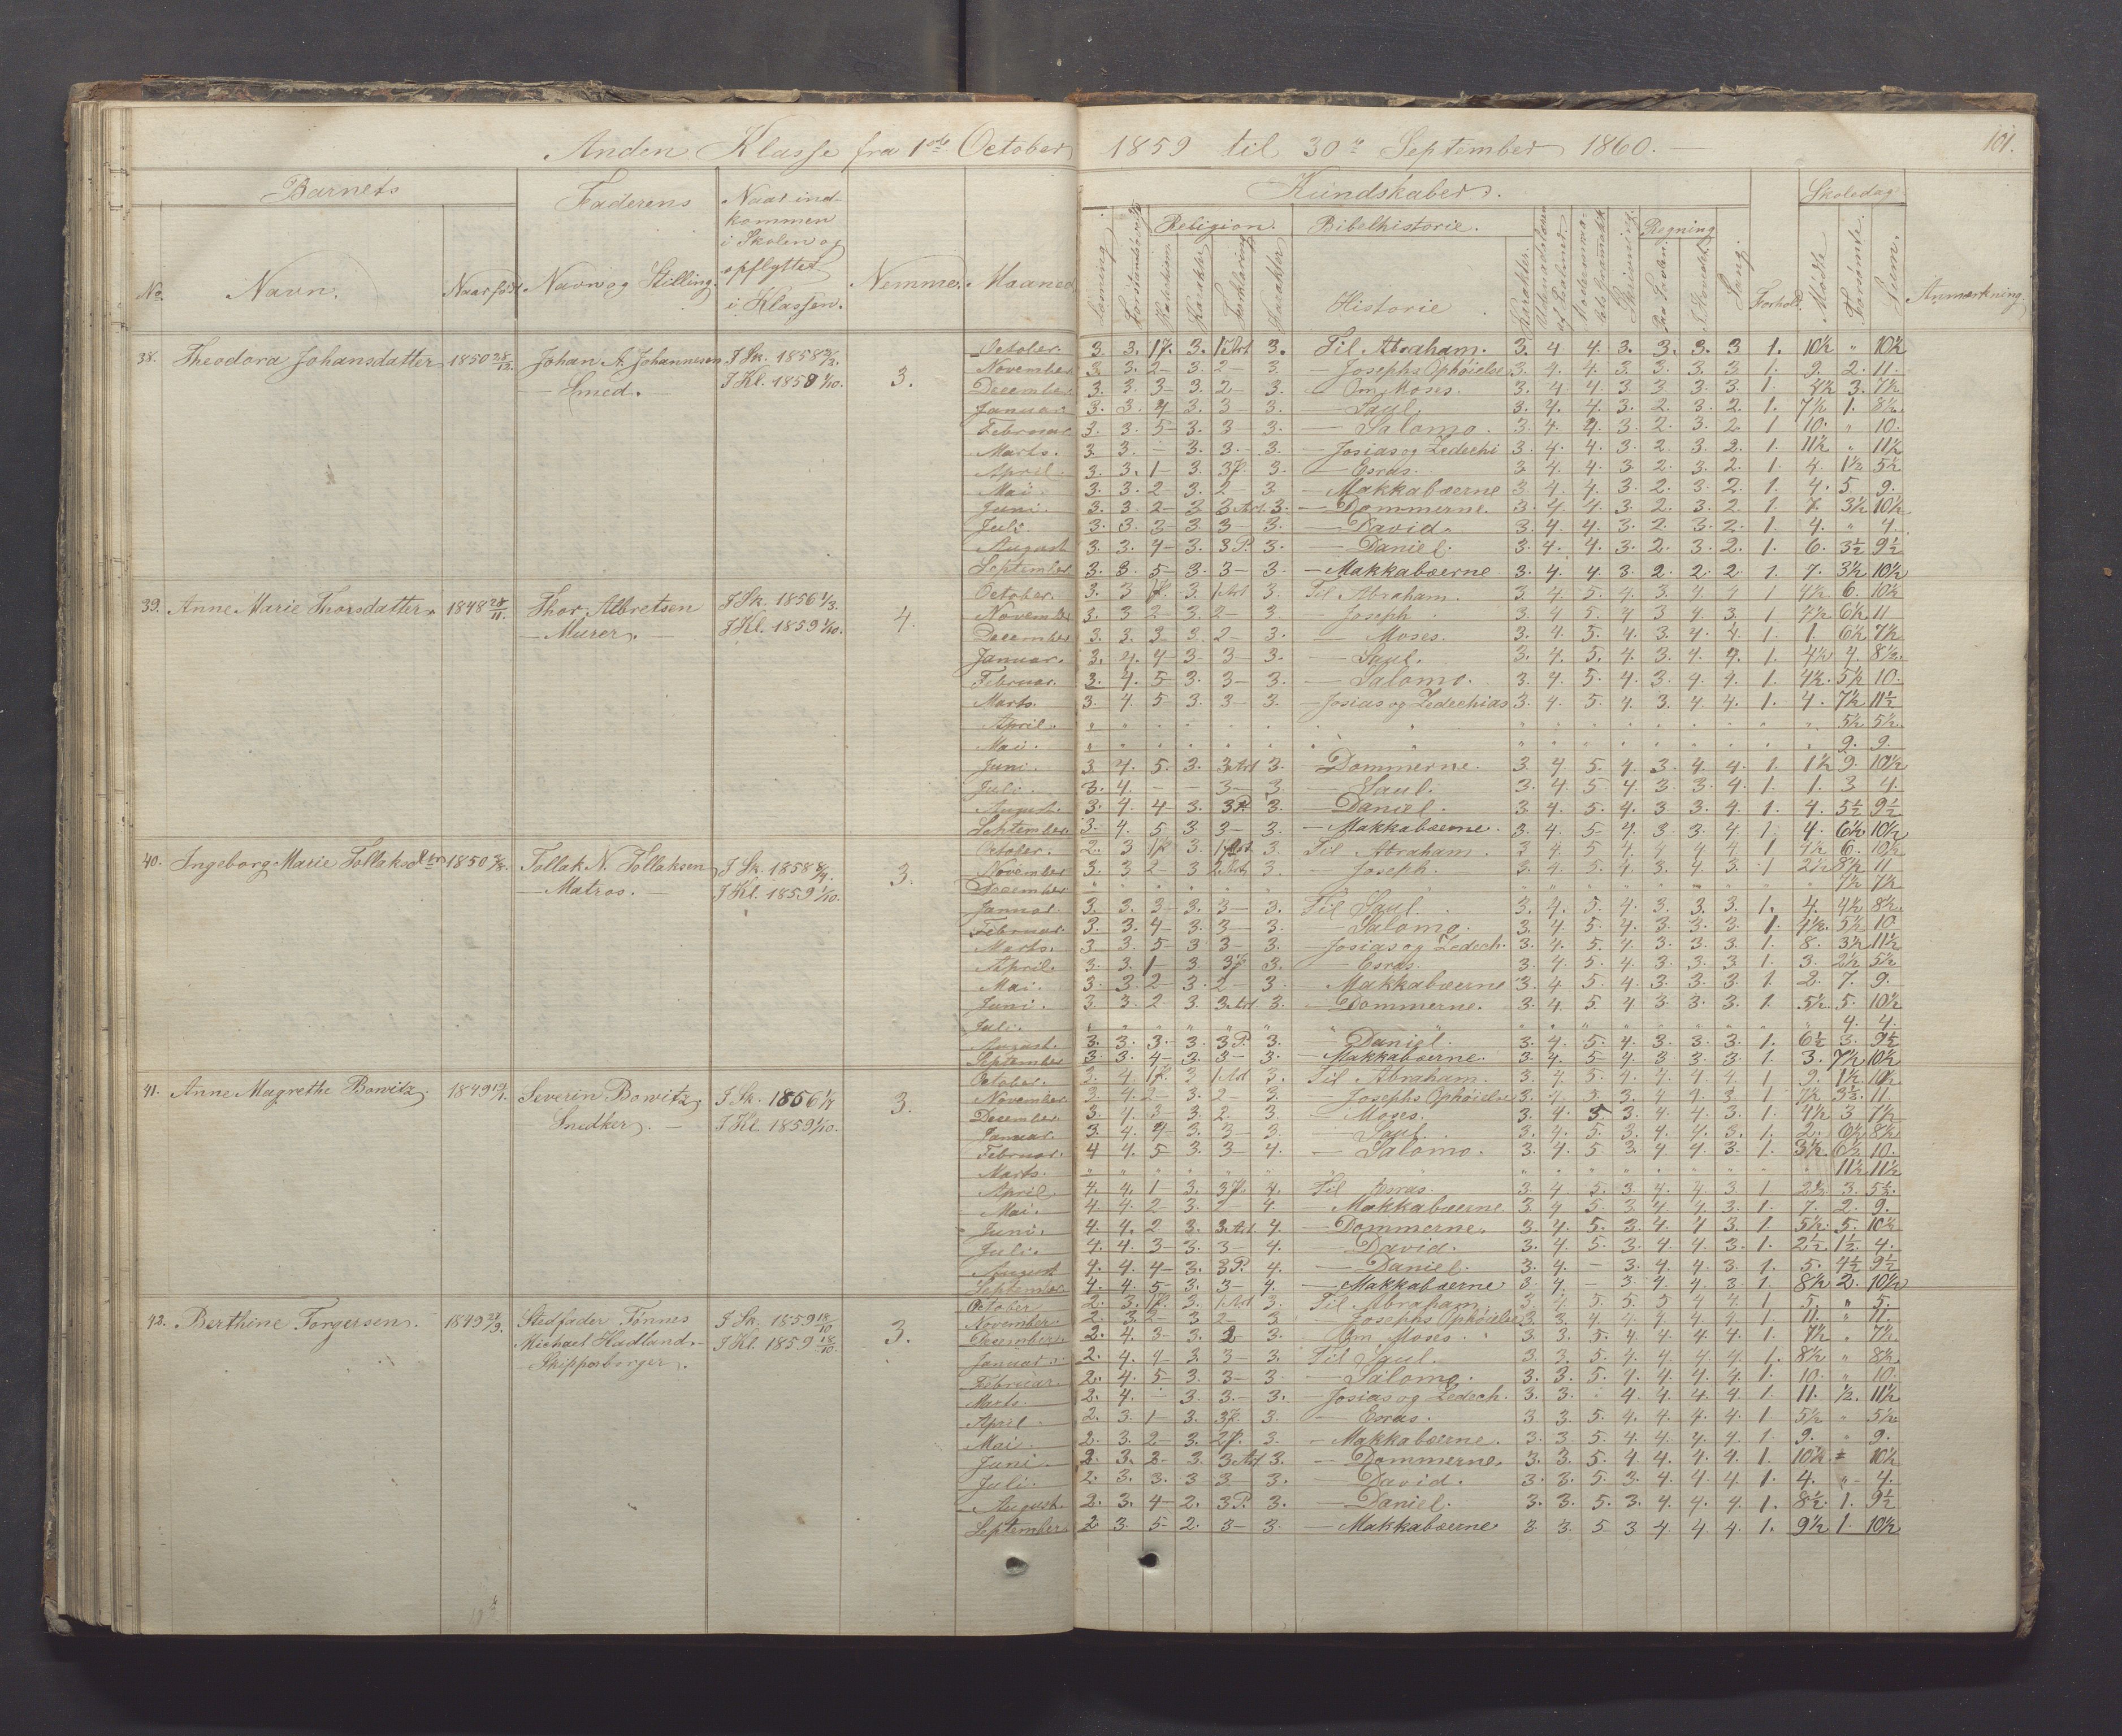 Anden Klasse fra 1ste October 1859 til 30te September 1860. —
101.
Barnets
No. Navn. Naar født
Faderens
Navn og Stilling.
Naar ind-
kommen
i Skolen og
opflyttet
i Klassen.
Nemme. Maaned
Kundskaber.
Læsning
Religion.
Karakter
Forklaring
Karakter
Bibelhistorie.
Historie Karakter.
Skrivning.
Regning
Sang.
Forhold.
Skoledag
Mødte Forsømte. Sum.
Anmærkning.
38. Theodora Johansdatter 1850 28/12. Johan A. Johannesen I Sk. 1858
— Smed. — I Kl. 1859 1/10. 3.
October. 3. 3. 1 P. 3. 1 Art 3. Til Abraham. 3. 4 4. 3. 3. 3. 3 1. 10½ " 10½
November 3 3. 2 — 3. 2 — 3. — Josephs Ophøielse 3. 4. 4. 3. 3. 3. 3 1. 9. 2. 11.
December 3. 3. 3 — 3. 2 — 3. — Om Moses. 3. 4 4 3 3 3. 3. 1. 4½ 3. 7½
Januar. 3. 3. 4 3. 3 — 3. — Saul. 3. 4. 4. 3. 2. 3. 2. 1. 7½ 1. 8½.
Februar 3. 3. 5 — 3. 3 — 3. — Salomo. 3. 4. 4. 3. 2. 3. 2 1 10. " 10.
Marts. 3. 3. — 3. 3. — 3. — Josias og Zedechi 3. 4. 4. 3 2 3. 2. 1. 11½ " 11½
April. 3 3. 1 — 3. 3 P. 3. — Esras. 3 4 4. 3 2. 3. 2. 1 4. 1½ 5½
Mai. 3. 3. 2 — 3. 2 — 3 — Makkabæerne 3. 4. 4. 3. 2. 3. 2. 1. 4. 5. 9.
Juni. 3. 3 2 — 3. 3 Art. 3. — Dommerne. 3. 4 4. 3 2. 3. 2 1. 7. 3½ 10½
Juli. 3. 3. 3 — 3. 3 — 3. — David. 3. 4 4. 3. 2 3. 2. 1 4. " 4.
August. 3. 3. 4 — 3. 3 P. 3. — Daniel. 3. 4. 4. 3. 2. 3. 2. 1. 6. 3½ 9½
September 3. 3. 5 — 3. 3 — 3. — Makkabæerne 3. 4. 4. 3. 2. 2. 2. 1. 7. 3½ 10½
39. Anne Marie Thorsdatter. 1848 28/11. Thor Albretsen I Sk. 1856 1/3.
— Murer. — I Kl. 1859 1/10. 4.
October. 3. 3 1 P. 3. 1 Art 3. Til Abraham. 3. 4 5. 4. 3. 4 4 1 4½ 6. 10½
November 3. 3 2 — 3. 2 — 3 — Joseph 3. 4 5. 4 3 4. 3. 1 4½ 6½ 11
December 3. 3. 3 — 3. 2 — 3. — Moses. 3. 4. 5. 4. 3. 4. 4. 1. 1. 6½ 7½
Januar. 3. 4. 4 — 3. 3 — 3. — Saul. 3. 4. 5. 4. 3. 4. 4. 1. 4½ 4. 8½.
Februar. 3. 4. 5 — 3. 3 — 3. — Salomo. 3. 4 5. 4. 3. 4. 4. 1. 4½. 5½ 10.
Marts. 3. 4. 5 — 3. 3 — 3. — Josias og Zedechias 3. 4. 5. 4. 3. 4. 4. 1. 4. 7½ 11½
April. 5½ 5½.
Mai. 9. 9.
Juni. 3 4. 5. 3. 3 Art 3. — Dommerne. 3. 4 5. 4. 3. 4. 4. 1. 1½ 9. 10½
Juli. 3. 4. — — 3 — 3. — Saul. 3. 4. 5 4. 3. 3. 4 1. 1. 3 4.
August. 3. 4. 4 3. 3 P. 3. — Daniel. 3. 4 5. 4. 3. 3. 4. 1. 4. 5½ 9½
September 3. 4. 5 3. 3 — 3. — Makkabæerne. 3. 4. 5 — 4. 3. 3. 4. 1. 4. 6½ 10½
40. Ingeborg Marie Tollaksdtr 1850 Tollak N. Tollaksen I Sk. 1858
— Matros. — I Kl. 1859 1/10. 3.
October. 2. 3 1 P. 3. 1 Art. 3 Til Abraham. 3 4 5 4 4 4 4 1 4½ 6. 10½
November 3. 3 2 — 3 2 Art 3. — Joseph. 3. 4 5. 4 3. 4 3. 1 2½ 8½ 11
December 7½ 7½
Januar. 3. 3. 3 — 3. 3 — 3. Til Saul. 3. 4. 5. 4. 3. 3. 3. 1. 4. 4½ 8½.
Februar. 3. 3. 4 — 3. 3 — 3. — Salomo. 3. 4. 5. 4. 3. 3. 3. 1. 4½. 5½ 10.
Marts. 3 3. 5 — 3 3 — 3. — Josias og Zedech. 3. 4. 5. 4. 3. 3. 3. 1. 8. 3½ 11½
April. 3. 3. 1 — 3. 3 P. 3. — Esras. 3. 4. 5. 4. 3. 3. 3 1. 3. 2½ 5½
Mai. 3. 3. 2 — 3. 2 — 3. — Makkabæerne 3. 4. 5. 4. 3. 3. 3. 1. 2. 7. 9.
Juni. 3. 3. 2 3 3 Art 3. — Dommerne. 3. 4. 5. 4 3. 3. 3. 1. 5½. 5. 10½
Juli. 4. 4.
August. 3. 3. 3. 3. 3 P. 3. — Daniel. 3. 4. 5. 4. 3. 3. 3. 1. 6½ 3. 9½
September 3. 3. 4 — 3. 3 — 3. — Makkabæerne. 3. 4. 5 4. 3. 3. 3. 1. 3. 7½ 10½
41. Anne Magrethe Bowitz. 1849 Severin Bowitz, I Sk. 1856
— Snedker. — I Kl. 1859 1/10. 3.
October. 3. 4. 1 P. 3 1 Art 3. Til Abraham. 3. 4. 5. 4. 4. 4. 4 1 9. 1½. 10½
November 3. 4. 2 — 3. 2 — 3 — Josephs Ophøielse 3. 4. 5. 3. 4 4. 3. 1 7½ 3½. 11.
December 3. 4. 3 — 3. 2. 3. — Moses. 3. 4. 5 3. 4. 4. 3. 1. 4½ 3 7½
Januar. 3. 4. 4 — 3. 3 — 3. — Saul. 3. 4. 5. 3. 4. 4. 3. 1. 2. 6½ 8½
Februar. 4 4. 5 — 3. 3 — 4. — Salomo. 3. 4. 5. 3. 4. 4. 3. 1. 3½. 6½ 10.
Marts. 11½ 11½
April. 4. 4. 1 — 3. 3 P. 4. Til Esras. 3. 4. 5. 3. 4. 4. 3 1 2½. 3. 5½.
Mai. 4. 4. 2 — 3. 2 — 4. — Makkabæerne 3. 4. 5. 3. 4 4. 3. 1. 7. 2. 9.
Juni. 4. 4. 2. 3. 3 Art 4. — Dommerne. 3. 4. 5. 3. 4. 4. 3. 1. 5½. 5. 10½
Juli. 4. 4. 3 — 3. 3 — 4. — David. 3. 4. 5. 3. 4. 4. 3. 1. 2½. 1½. 4.
August 4. 4. 4 — 3. 3 P. 4. — Daniel. 3. 4. — 3. 4. 4. 3. 1. 5. 4½ 9½
September 4. 4. 5 — 3. 3 — 4. — Makkabæerne 3. 4. — 3. 4. 4. 3. 1. 8½ 2. 10½
42. Berthine Torgersen. 1849 Stedfader Tønnes I Sk. 1859 18/10
Michael Hadland. I Kl. 1859 18/10. 3.
Skipperborger.
October 2. 3. 1 P. 3. 1 Art 3. Til Abraham. 3. 4. 5. 5. 5 4. 4. 1 5. " 5.
November. 2. 3. 2 — 3 2 — 3. — Josephs Ophøielse 3. 3. 4 4. 4. 4. 4. 1. 11. " 11.
December. 2. 4. 3 — 3. 2 — 3. — Om Moses. 3. 3. 5. 4. 4. 4. 4. 1. 7½ " 7½
Januar. 2. 4. 4 — 3. 3 — 3. Til Saul. 3. 3. 5. 4. 4. 4. 4. 1. 8½ " 8½.
Februar. 2. 4. 5 — 3. 3 — 3 — Salomo. 3. 3. 5. 4. 4. 4. 4. 1. 10. " 10.
Marts. 2. 4. — 3. 3. — 3. — Josias og Zedech. 3. 3. 4. 4. 4. 4. 1 11. ½. 11½
April. 2. 3. 1 — 3. 3 P. 3. — Esras. 3. 3 5. 4. 4. 4. 4. 1 5½ " 5½
Mai. 2. 3. 2 — 3. 2 P. 3. — Makkabæerne. 3. 3. 5. 4. 4. 4. 4. 1. 9. " 9.
Juni. 2. 3. 2 — 3. 3 Art 3. — Dommerne. 3. 3. 5. 4. 4. 4. 4. 1. 10½ 10½
Juli. 2. 3. 3. 3. 3 — 3. — David. 3. 3. 5. 3. 4. 4. 4 1. 4. " 4.
August. 2. 3. 4 — 2. 3 P. 3. — Daniel. 3. 3. 5. 3. 4. 4. 4. 1. 8½. 1. 9½
September. 2. 3. 5 — 2. 3 — 3. — Makkabæerne 3. 3. 5 3 4 4. 4. 1. 9½ 1. 10½